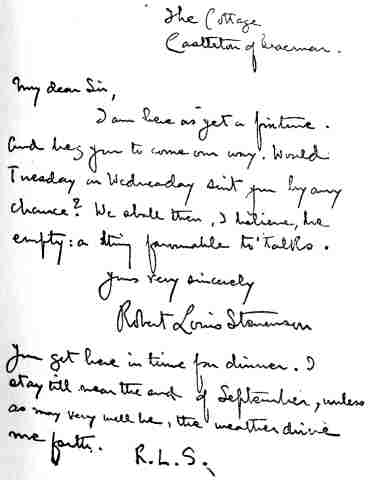 The Cottage
Castleton of Braemar.
My dear Sir,
I am here as yet a fixture.
and beg you to come our way. Would
Tuesday or Wednesday suit you by any
chance? We shall then, I believe, be
empty: a thing favourable to talks.
Yours very sincerely
Robert Louis Stevenson
You get here in time for dinner. I
stay till near the end of September, unless
as may very well be, the weather drive
me forth. R.L.S.